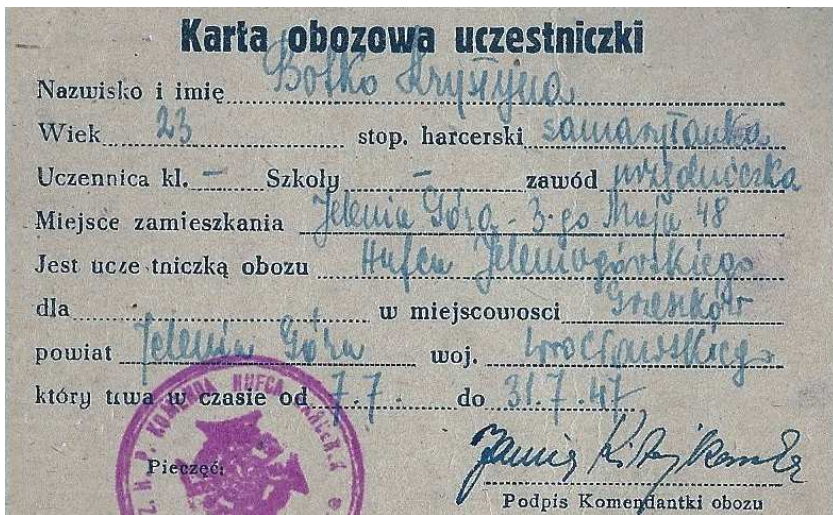 Karta obozowa uczestniczki
Nazwisko i imię Botko Krystyna
Wiek 23 stop. harcerski samarytanka
Uczennica kl. — Szkoły — zawód urzędniczka
Miejsce zamieszkania Jelenia Góra - 3-go Maja 48
Jest ucze tniczką obozu Hufca Jeleniogórskiego
dla w miejscowosci
powiat Jelenia Góra woj. wrocławskiego
który trwa w czasie od 7.7. do 31.7.47
Z. H. P. KOMENDA HUFCA
Pieczęć:
Podpis Komendantki obozu